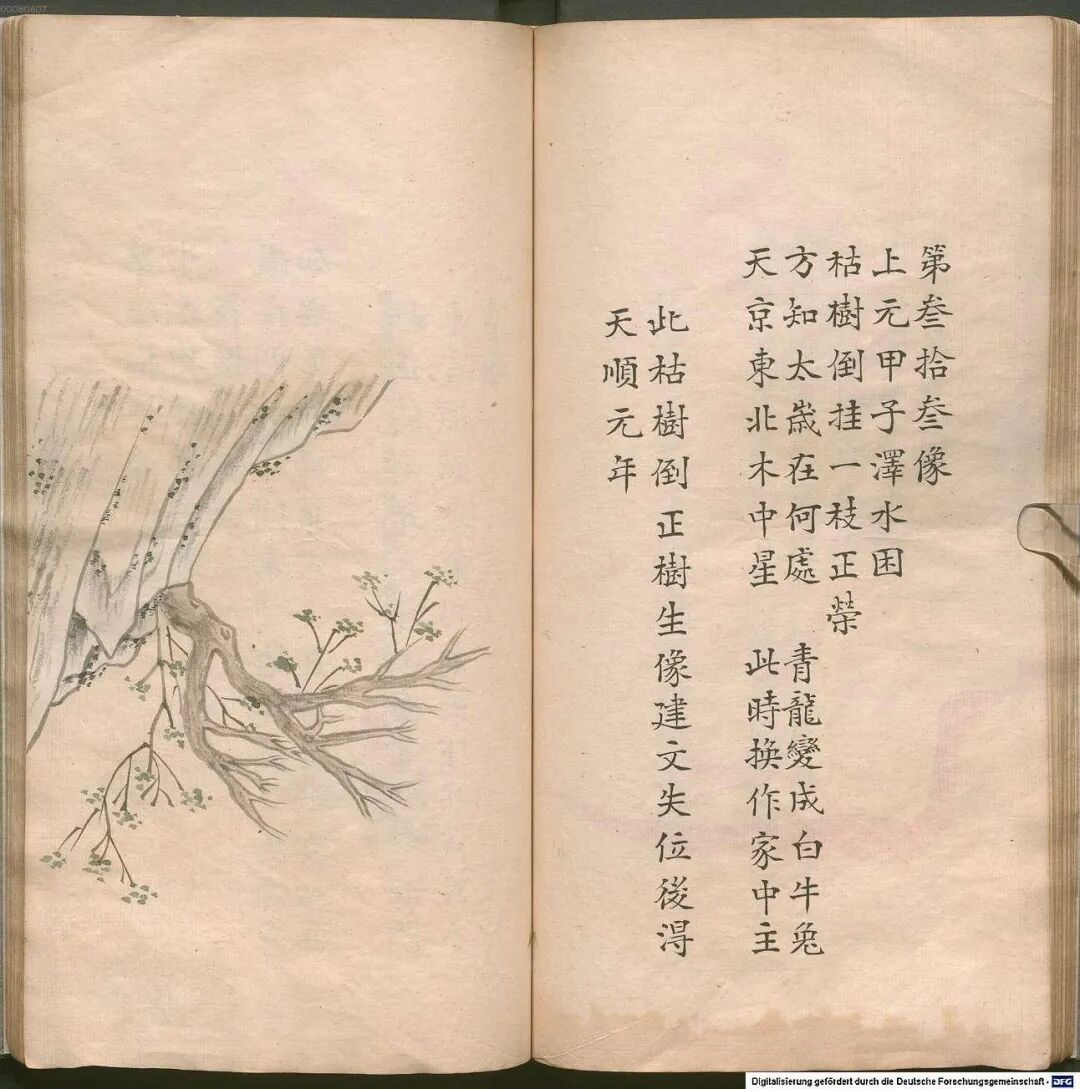 第叁拾叁像
上元甲子澤水困
枯樹倒挂一枝正榮
方知太嵗在何處 青龍變成白牛兔
天京東北木中星 此時换作家中主
此枯樹倒正樹生像建文失位後淂
天順元年
00080607
Digitalisierung gefördert durch die Deutsche Forschungsgemeinschaft - DFG